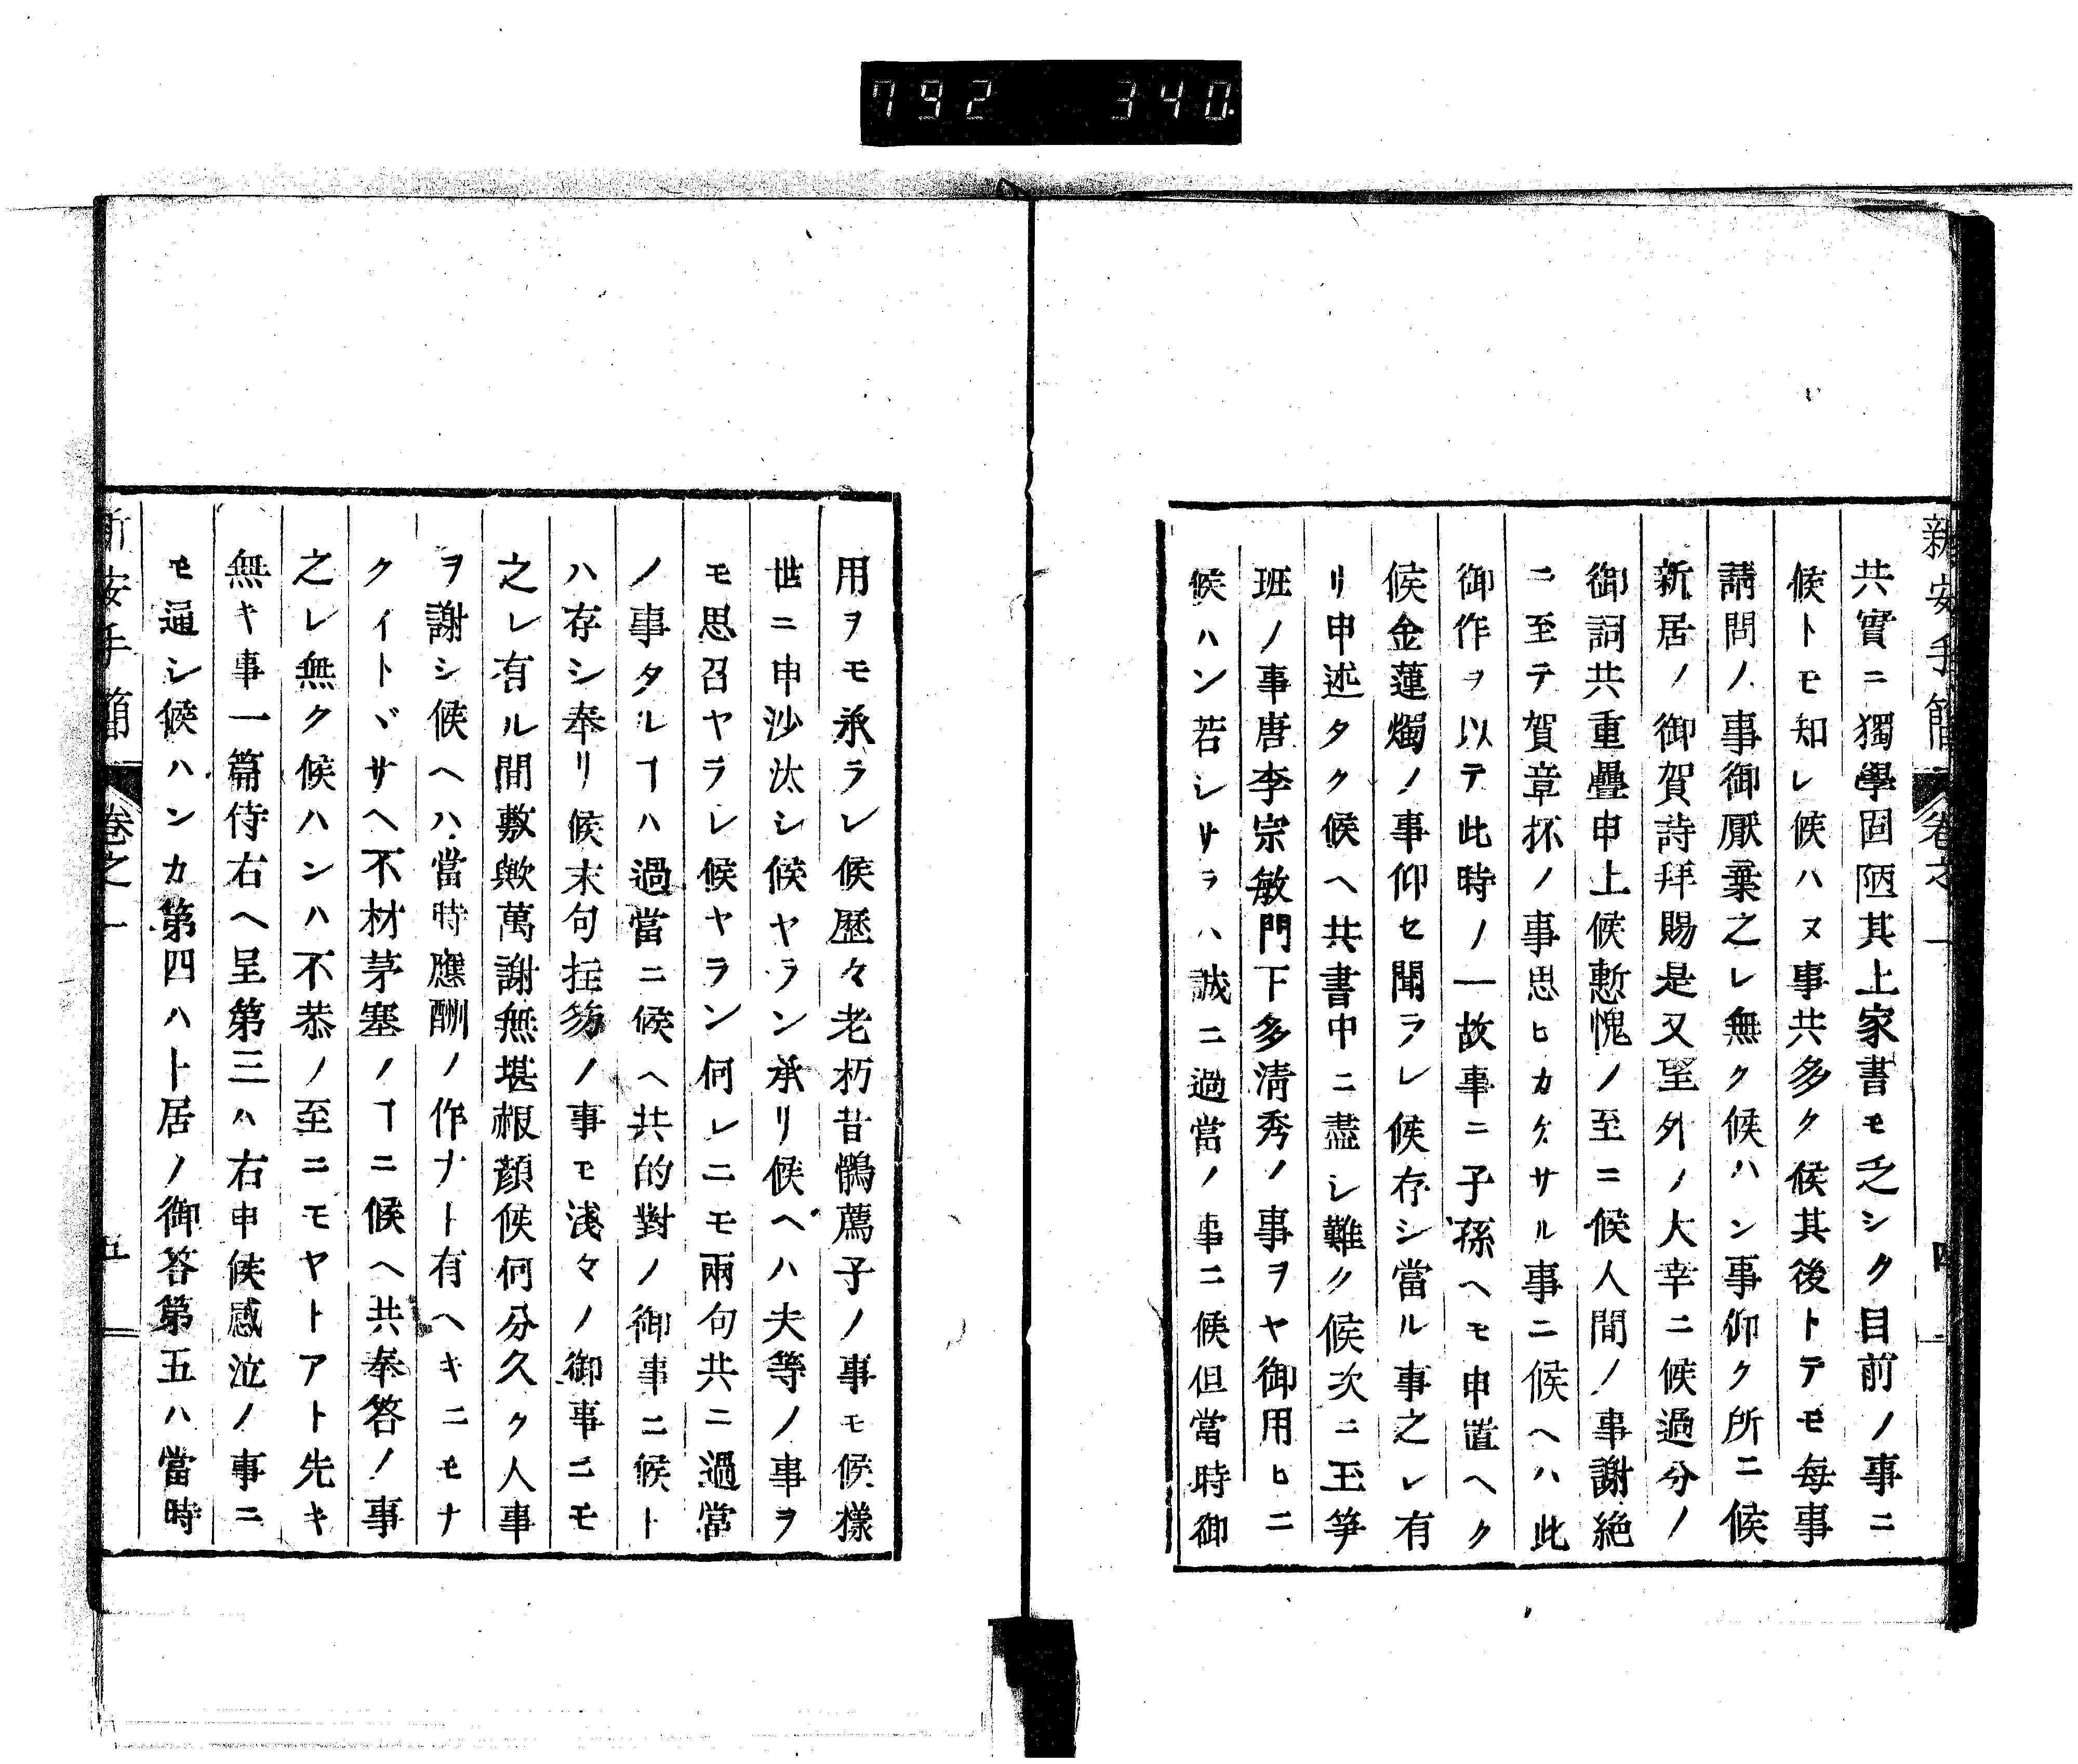 792 340
新安手簡 卷之一 四
共實ニ獨學固陋其上家書モ乏シク目前ノ事ニ
候トモ知レ候ハヌ事共多ク候其後トテモ每事
請問ノ事御厭棄之レ無ク候ハン事仰ク所ニ候
新居ノ御賀詩拜賜是又望外ノ大幸ニ候過分ノ
御詞共重疊申上候慙愧ノ至ニ候人間ノ事謝絶
ニ至テ賀章抔ノ事思ヒカケサル事ニ候ヘハ此
御作ヲ以テ此時ノ一故事ニ子孫ヘモ申置ヘク
候金蓮燭ノ事仰セ聞ラレ候存シ當ル事之レ有
リ申述タク候ヘ共書中ニ盡シ難ク候次ニ玉笋
班ノ事唐李宗敏門下多淸秀ノ事ヲヤ御用ヒニ
候ハン若シサラハ誠ニ過當ノ事ニ候但當時御
用ヲモ承ラレ候歷々老朽昔鶺薦子ノ事モ候樣
世ニ申沙汰シ候ヤラン承リ候ヘハ夫等ノ事ヲ
モ思召ヤラレ候ヤラン何レニモ兩句共ニ過當
ノ事タルヿハ過當ニ候ヘ共的對ノ御事ニ候ト
ハ存シ奉リ候末句拄笏ノ事モ淺々ノ御事ニモ
之レ有ル間敷歟萬謝無堪赧顏候何分久ク人事
ヲ謝シ候ヘハ當時應酬ノ作ナト有ヘキニモナ
クイトヾサヘ不材茅塞ノヿニ候ヘ共奉答ノ事
之レ無ク候ハンハ不恭ノ至ニモヤトアト先キ
無キ事一篇侍右ヘ呈第三ハ右申候感泣ノ事ニ
モ逼シ候ハンカ第四ハト居ノ御答第五ハ當時
新安手簡 卷之一 五